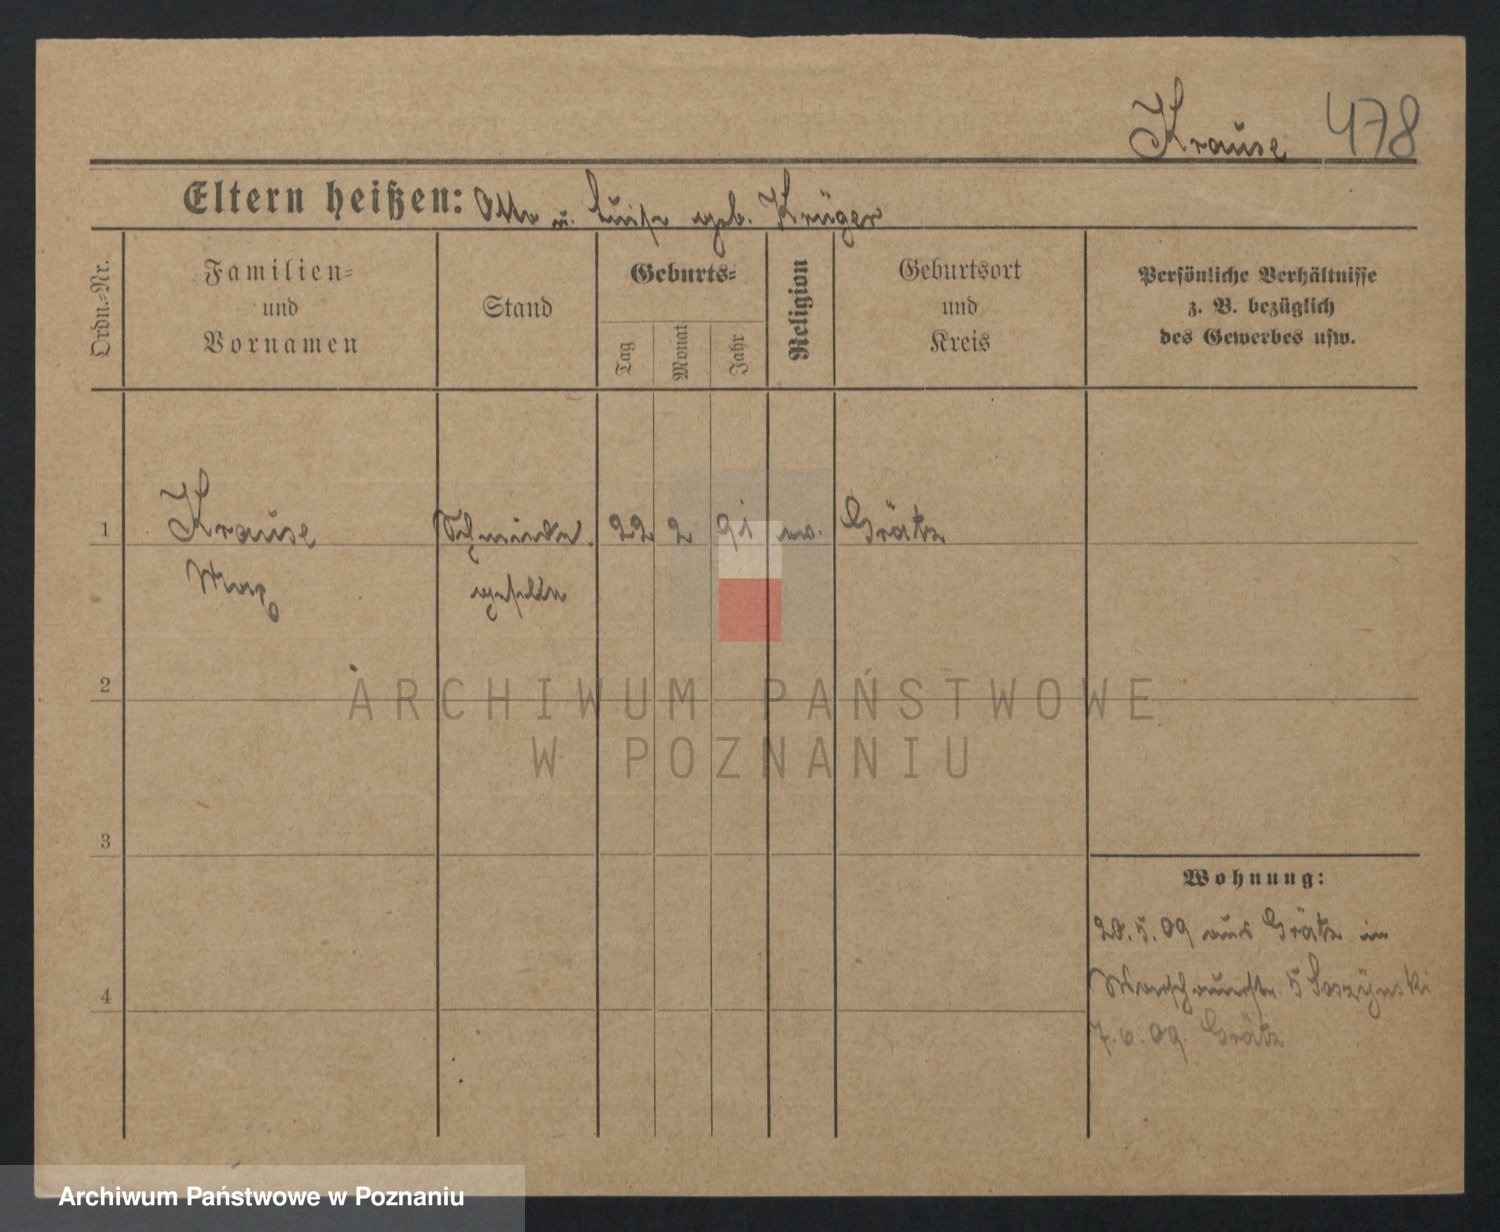 Krause 478
Eltern heißen: Otto u. Luise geb. Krüger
Ordn.-Nr.
Familien-
und
Vornamen
Stand
Geburts-
Tag
Monat
Jahr
Religion
Geburtsort
und
Kreis
Persönliche Verhältnisse
z. B. bezüglich
des Gewerbes usw.
1 Krause Schmiede 22 2 91 ev. Grätz
Max geselle
2
ARCHIWUM PAŃSTWOWE
W POZNANIU
3
Wohnung:
20.5.09 aus Grätz in
4
5
7.6.09. Grätz
Archiwum Państwowe w Poznaniu